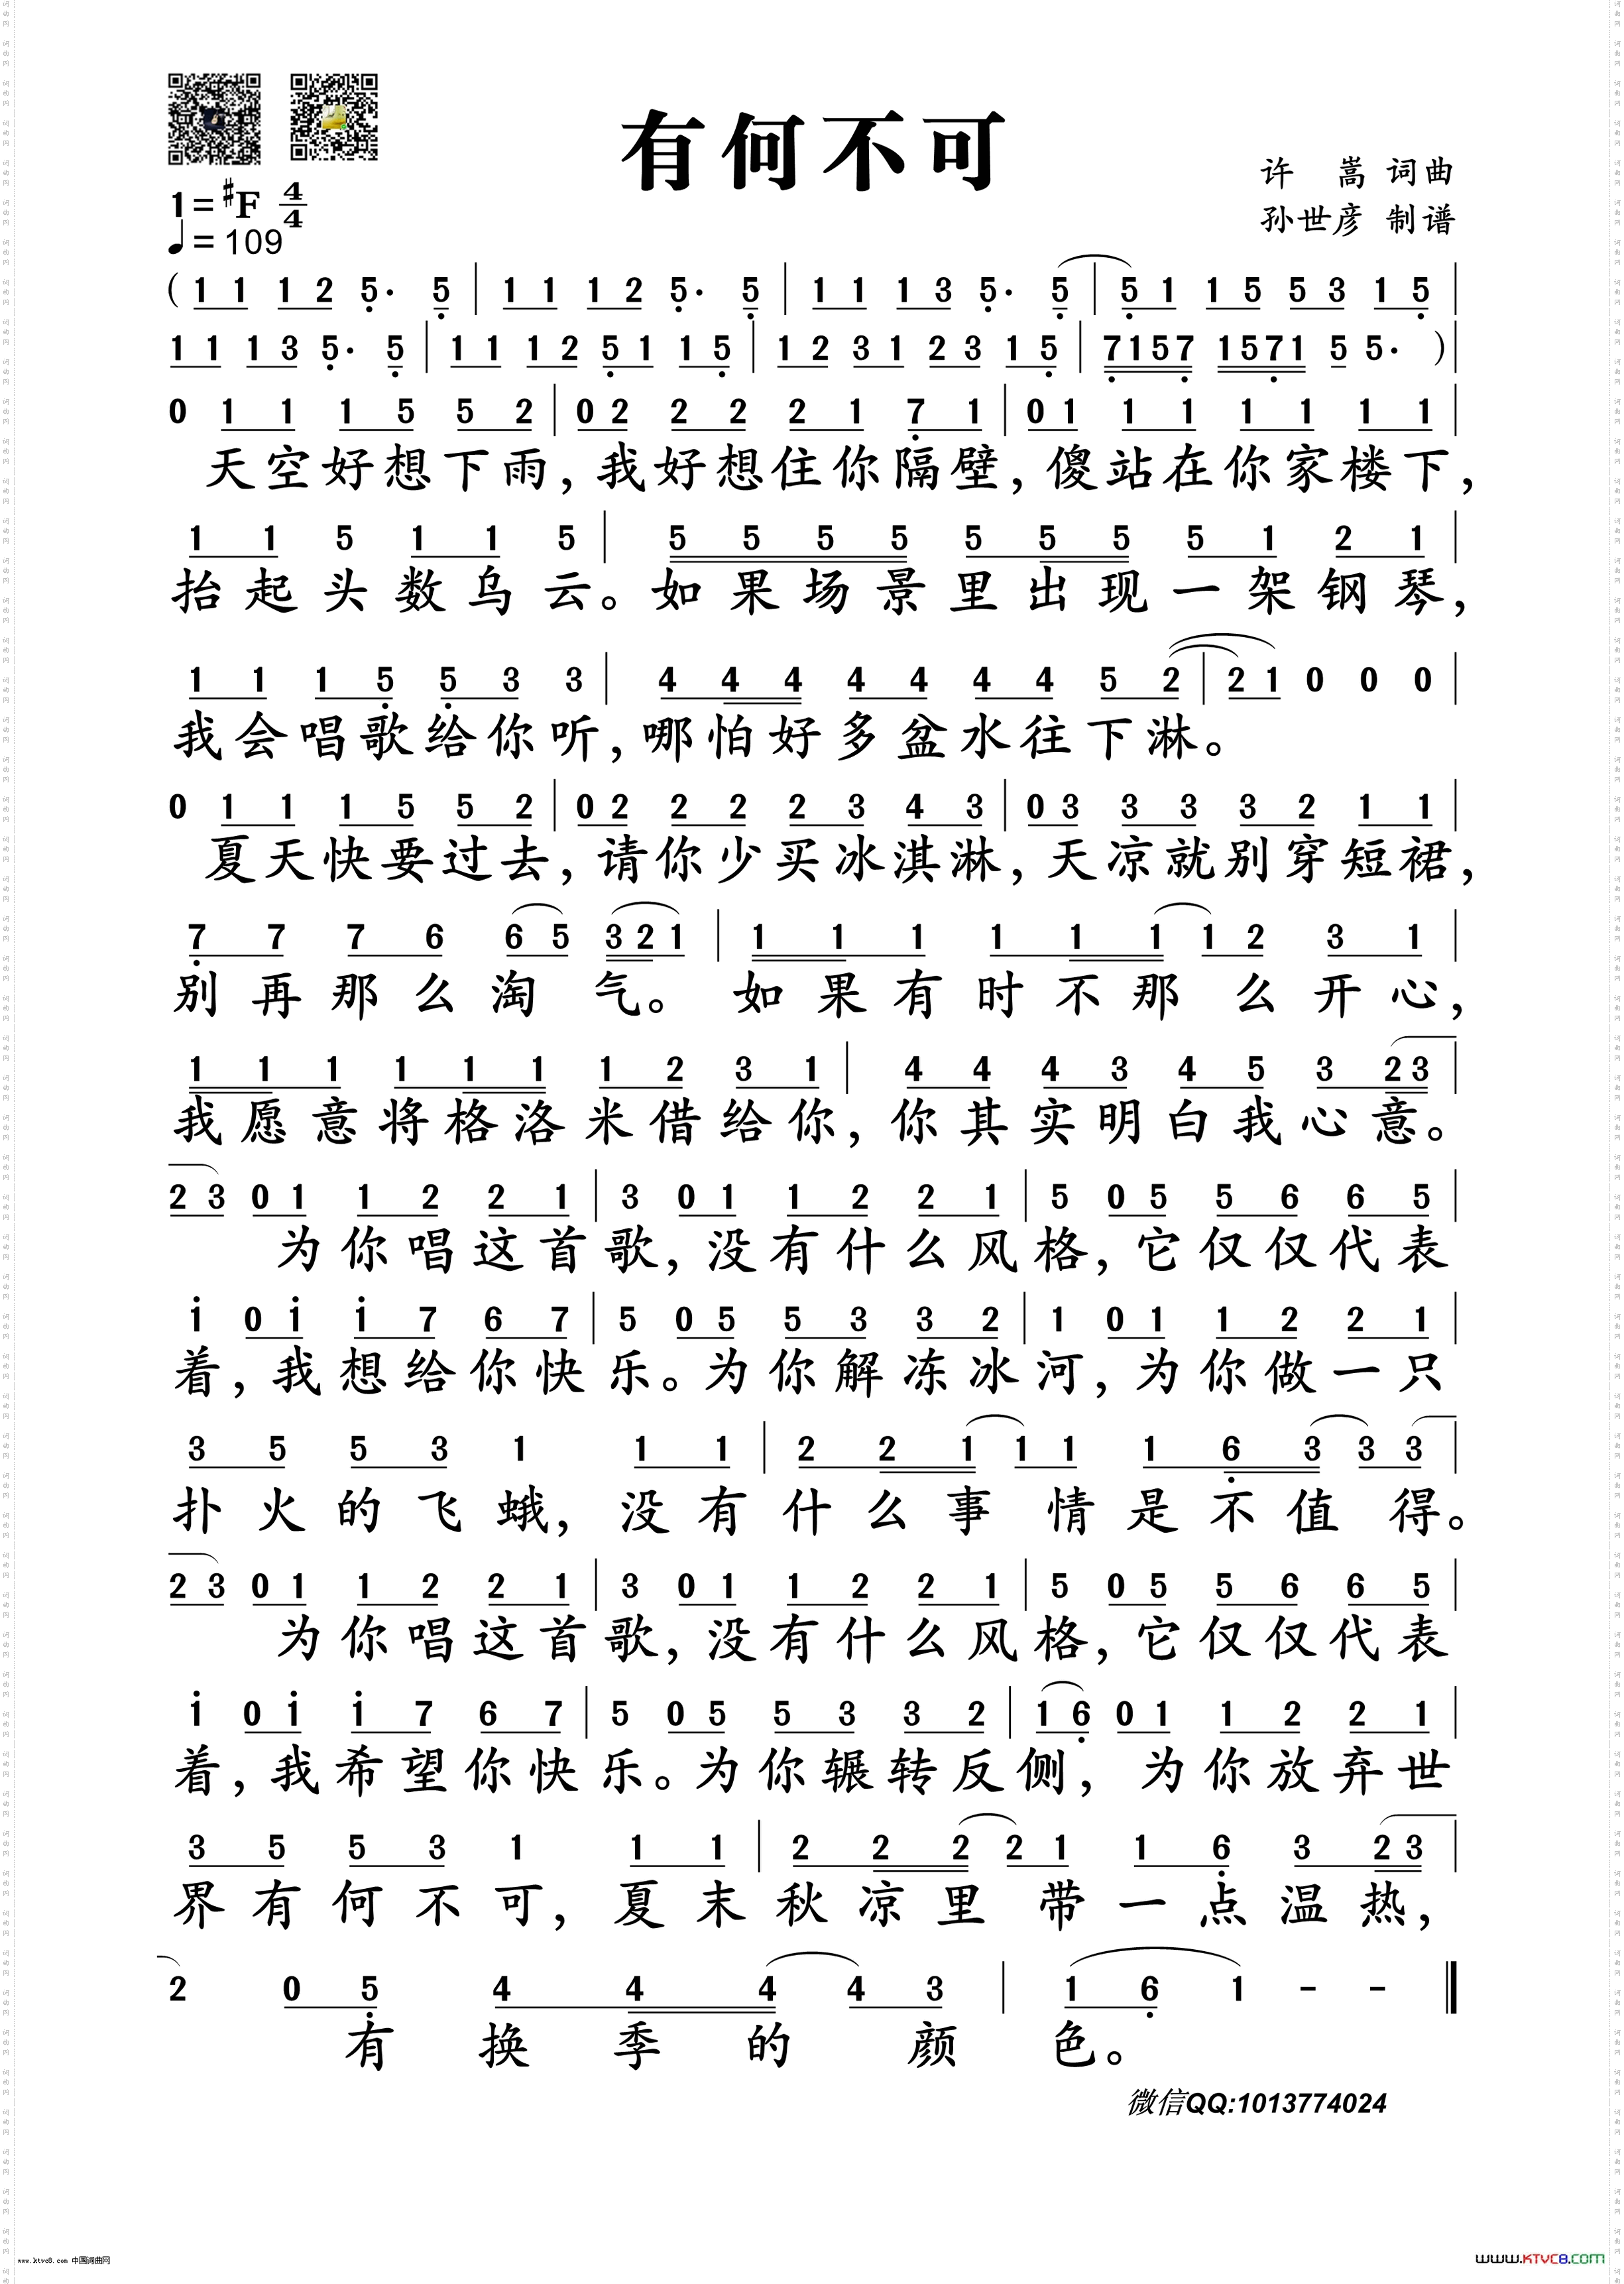 有何不可
许 嵩 词曲
孙世彦 制谱
1=#F 4/4
♩=109
( 1 1 1 2 5· 5 | 1 1 1 2 5· 5 | 1 1 1 3 5· 5 | 5 1 1 5 5 3 1 5 |
1 1 1 3 5· 5 | 1 1 1 2 5 1 1 5 | 1 2 3 1 2 3 1 5 | 7157 1571 5 5· )|
0 1 1 1 5 5 2 | 0 2 2 2 2 1 7 1 | 0 1 1 1 1 1 1 1 |
天空好想下雨,我好想住你隔壁,傻站在你家楼下,
1 1 5 1 1 5 | 5 5 5 5 5 5 5 5 1 2 1 |
抬起头数乌云。如果场景里出现一架钢琴,
1 1 1 5 5 3 3 | 4 4 4 4 4 4 4 5 2 | 2 1 0 0 0 |
我会唱歌给你听,哪怕好多盆水往下淋。
0 1 1 1 5 5 2 | 0 2 2 2 2 3 4 3 | 0 3 3 3 3 2 1 1 |
夏天快要过去,请你少买冰淇淋,天凉就别穿短裙,
7 7 7 6 6 5 3 2 1 | 1 1 1 1 1 1 1 2 3 1 |
别再那么淘气。如果有时不那么开心,
1 1 1 1 1 1 1 2 3 1 | 4 4 4 3 4 5 3 2 3 |
我愿意将格洛米借给你,你其实明白我心意。
2 3 0 1 1 2 2 1 | 3 0 1 1 2 2 1 | 5 0 5 5 6 6 5 |
为你唱这首歌,没有什么风格,它仅仅代表
i 0 i i 7 6 7 | 5 0 5 5 3 3 2 | 1 0 1 1 2 2 1 |
着,我想给你快乐。为你解冻冰河,为你做一只
3 5 5 3 1 1 1 | 2 2 1 1 1 1 6 3 3 3 |
扑火的飞蛾,没有什么事情是不值得。
2 3 0 1 1 2 2 1 | 3 0 1 1 2 2 1 | 5 0 5 5 6 6 5 |
为你唱这首歌,没有什么风格,它仅仅代表
i 0 i i 7 6 7 | 5 0 5 5 3 3 2 | 1 6 0 1 1 2 2 1 |
着,我希望你快乐。为你辗转反侧,为你放弃世
3 5 5 3 1 1 1 | 2 2 2 2 1 1 6 3 2 3 |
界有何不可,夏末秋凉里带一点温热,
2 0 5 4 4 4 4 3 | 1 6 1 - - ‖
有换季的颜色。
微信QQ:1013774024
www.ktvc8.com 中国词曲网
www.KTVC8.com